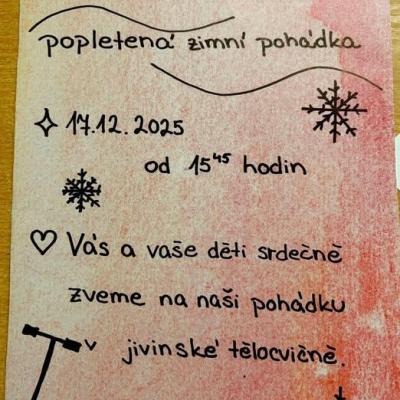 popletená zimní pohádka
17.12. 2025
od 15⁴⁵ hodin
Vás a vaše děti srdečně
zveme na naši pohádku
v jivinské tělocvičně.